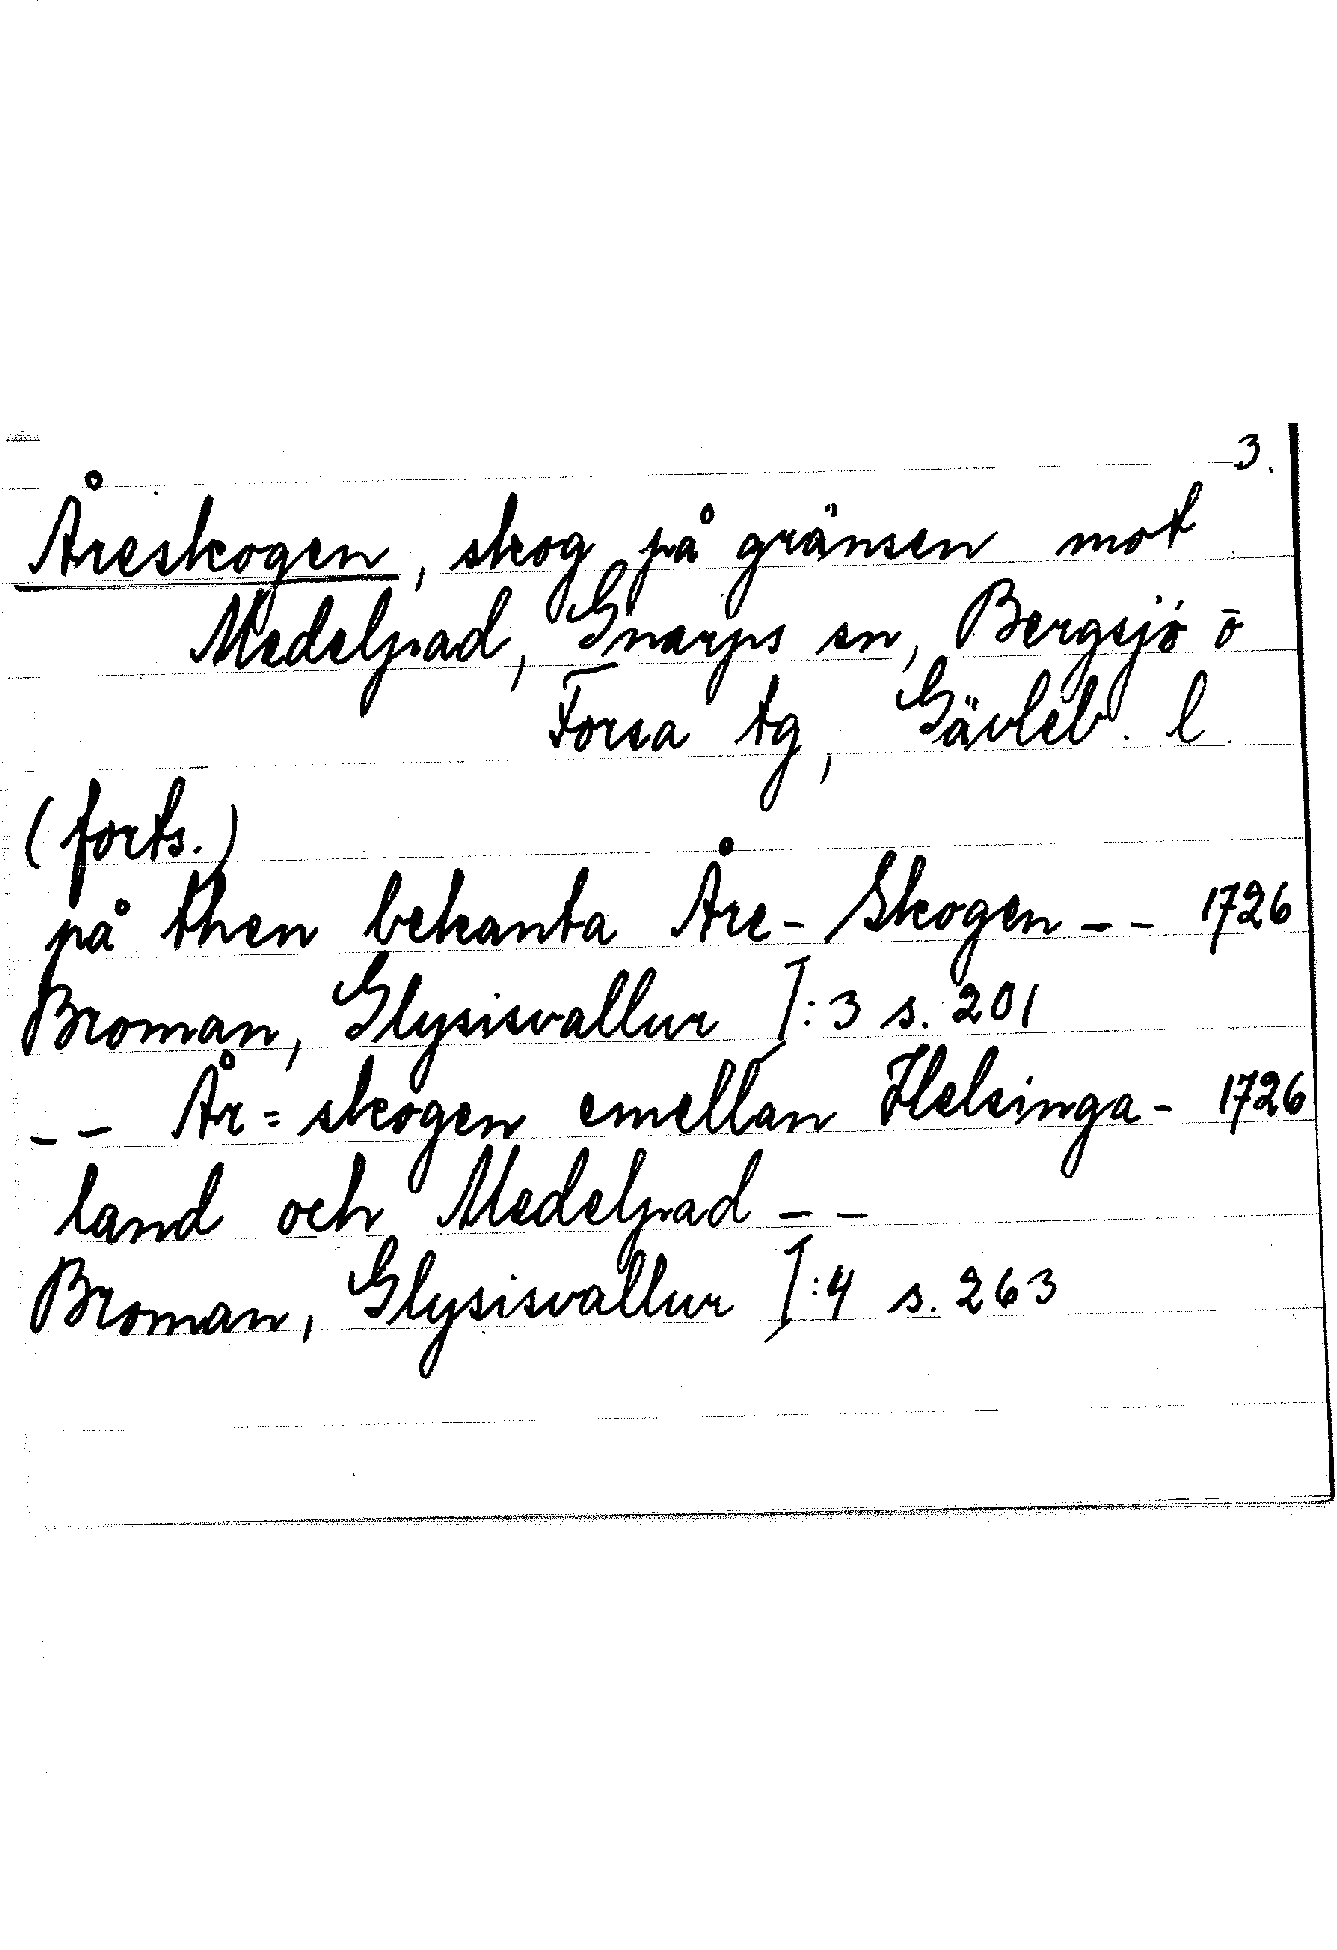 3.
Åreskogen, skog på gränsen mot
Medelpad, Gnarps sn, Bergsjö o
Forsa tg, Gävleb. l
(forts.)
på then bekanta Åre-Skogen - - 1726
Broman, Glysisvallur I:3 s. 201
- - År=skogen emellan Helsinga- 1726
land och Medelpad - -
Broman, Glysisvallur I:4 s. 263